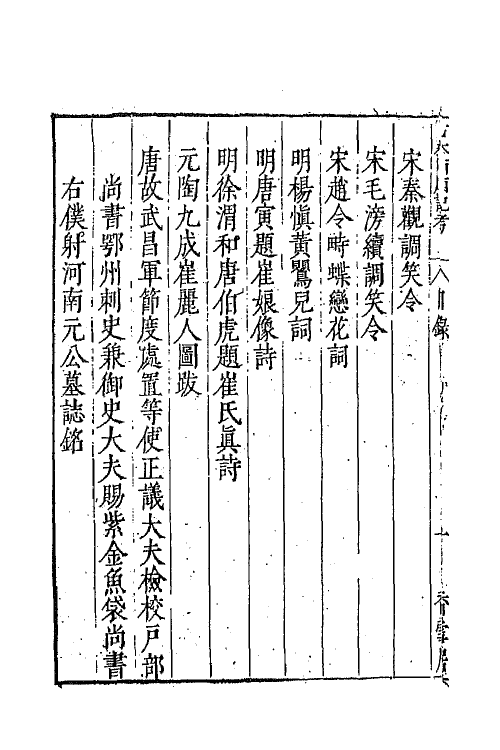 宋秦觀調笑令
宋毛滂續調笑令
宋趙令畤蝶戀花詞
明楊愼黃鸎兒詞
明唐寅題崔娘像詩
明徐渭和唐伯虎題崔氏眞詩
元陶九成崔麗人圖跋
唐故武昌軍節度處置等使正議大夫檢校戸部
尚書鄂州刺史兼御史大夫賜紫金魚袋尚書
右僕射河南元公墓誌銘